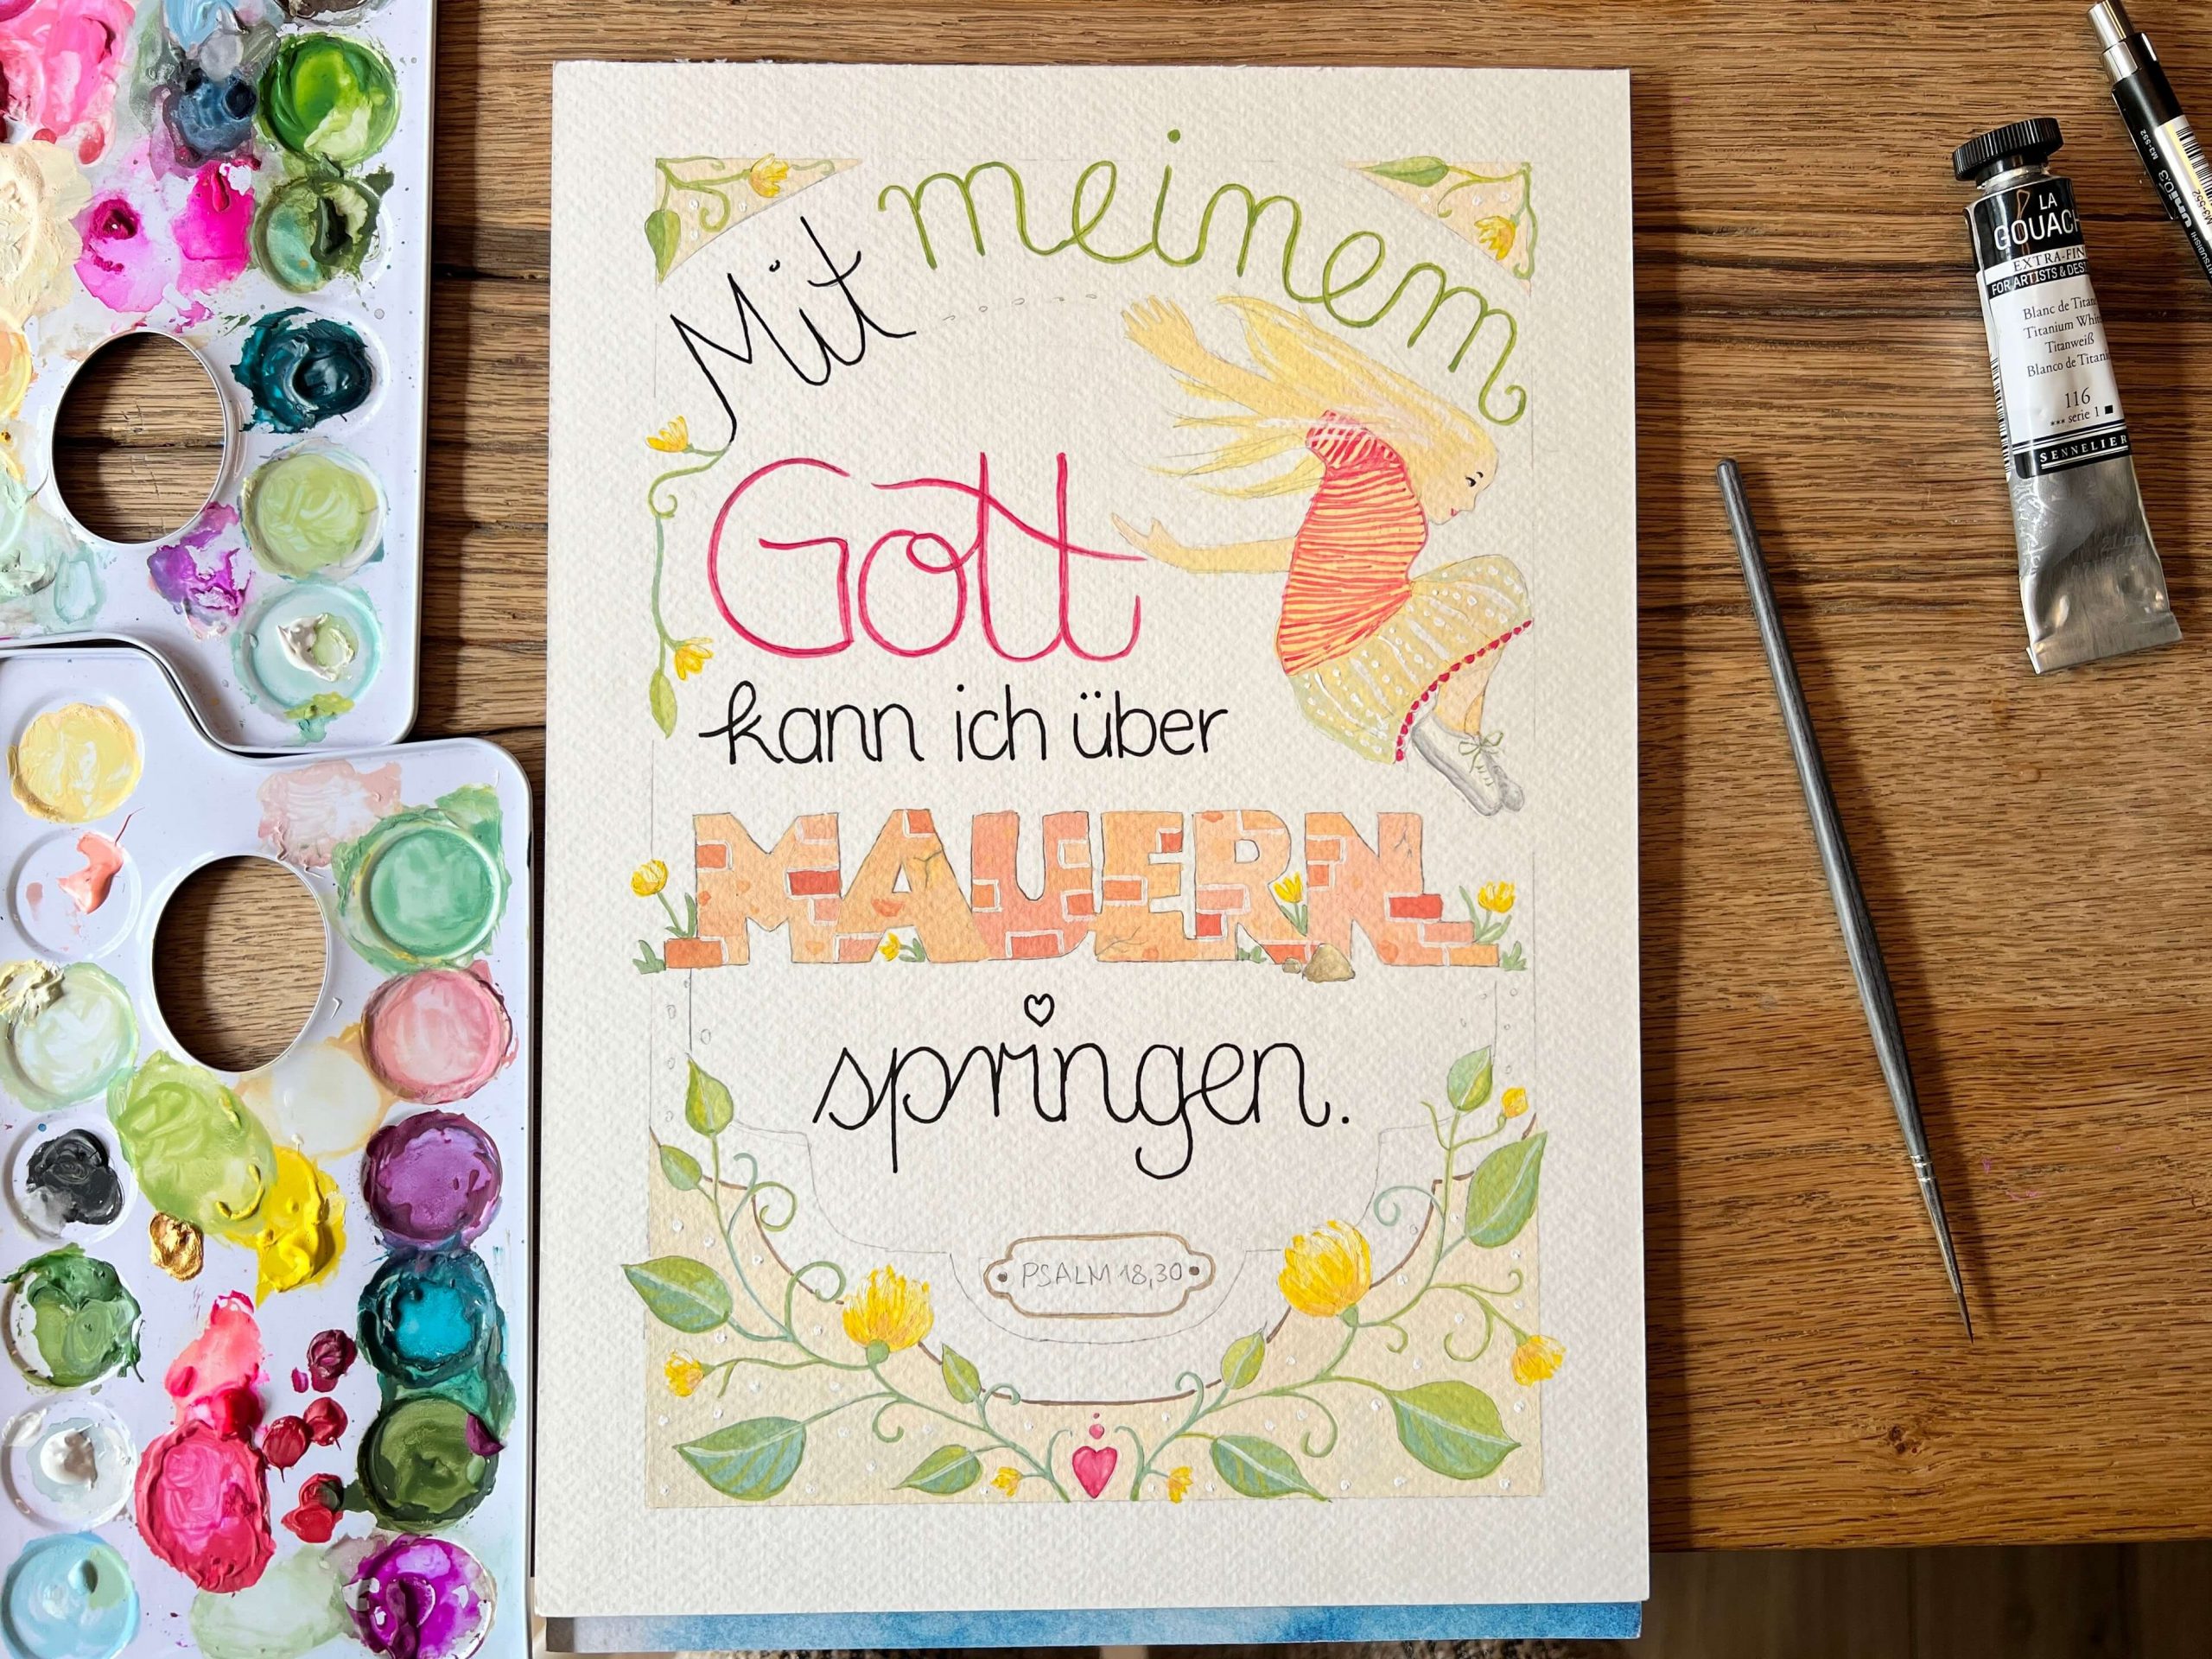 Mit meinem
Gott
kann ich über
MAUERN
springen.
PSALM 18,30
LA
GOUACH
EXTRA-FIN
FOR ARTISTS & DES
Blanc de Titan
Titanium Whit
Titanweiß
Blanco de Titani
116
*** serie 1 ■
SENNELIER
M3-552
uni 0.3